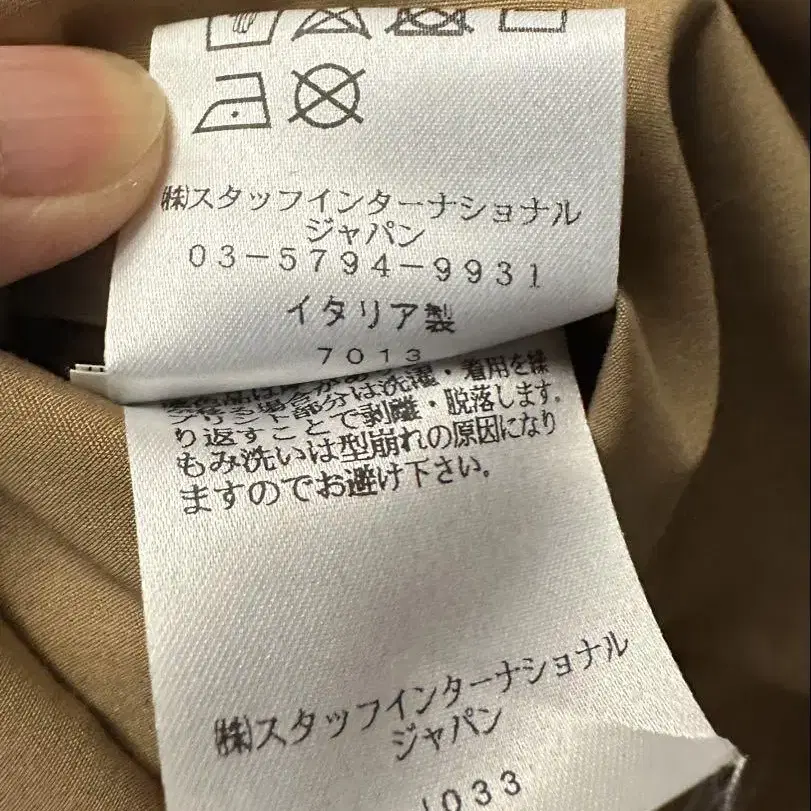 ㈱スタッフインターナショナル
ジャパン
03-5794-9931
イタリア製
7013
プリント部分は洗濯・着用を繰
り返すことで剥離・脱落します。
もみ洗いは型崩れの原因になり
ますのでお避け下さい。
㈱スタッフインターナショナル
ジャパン
1033